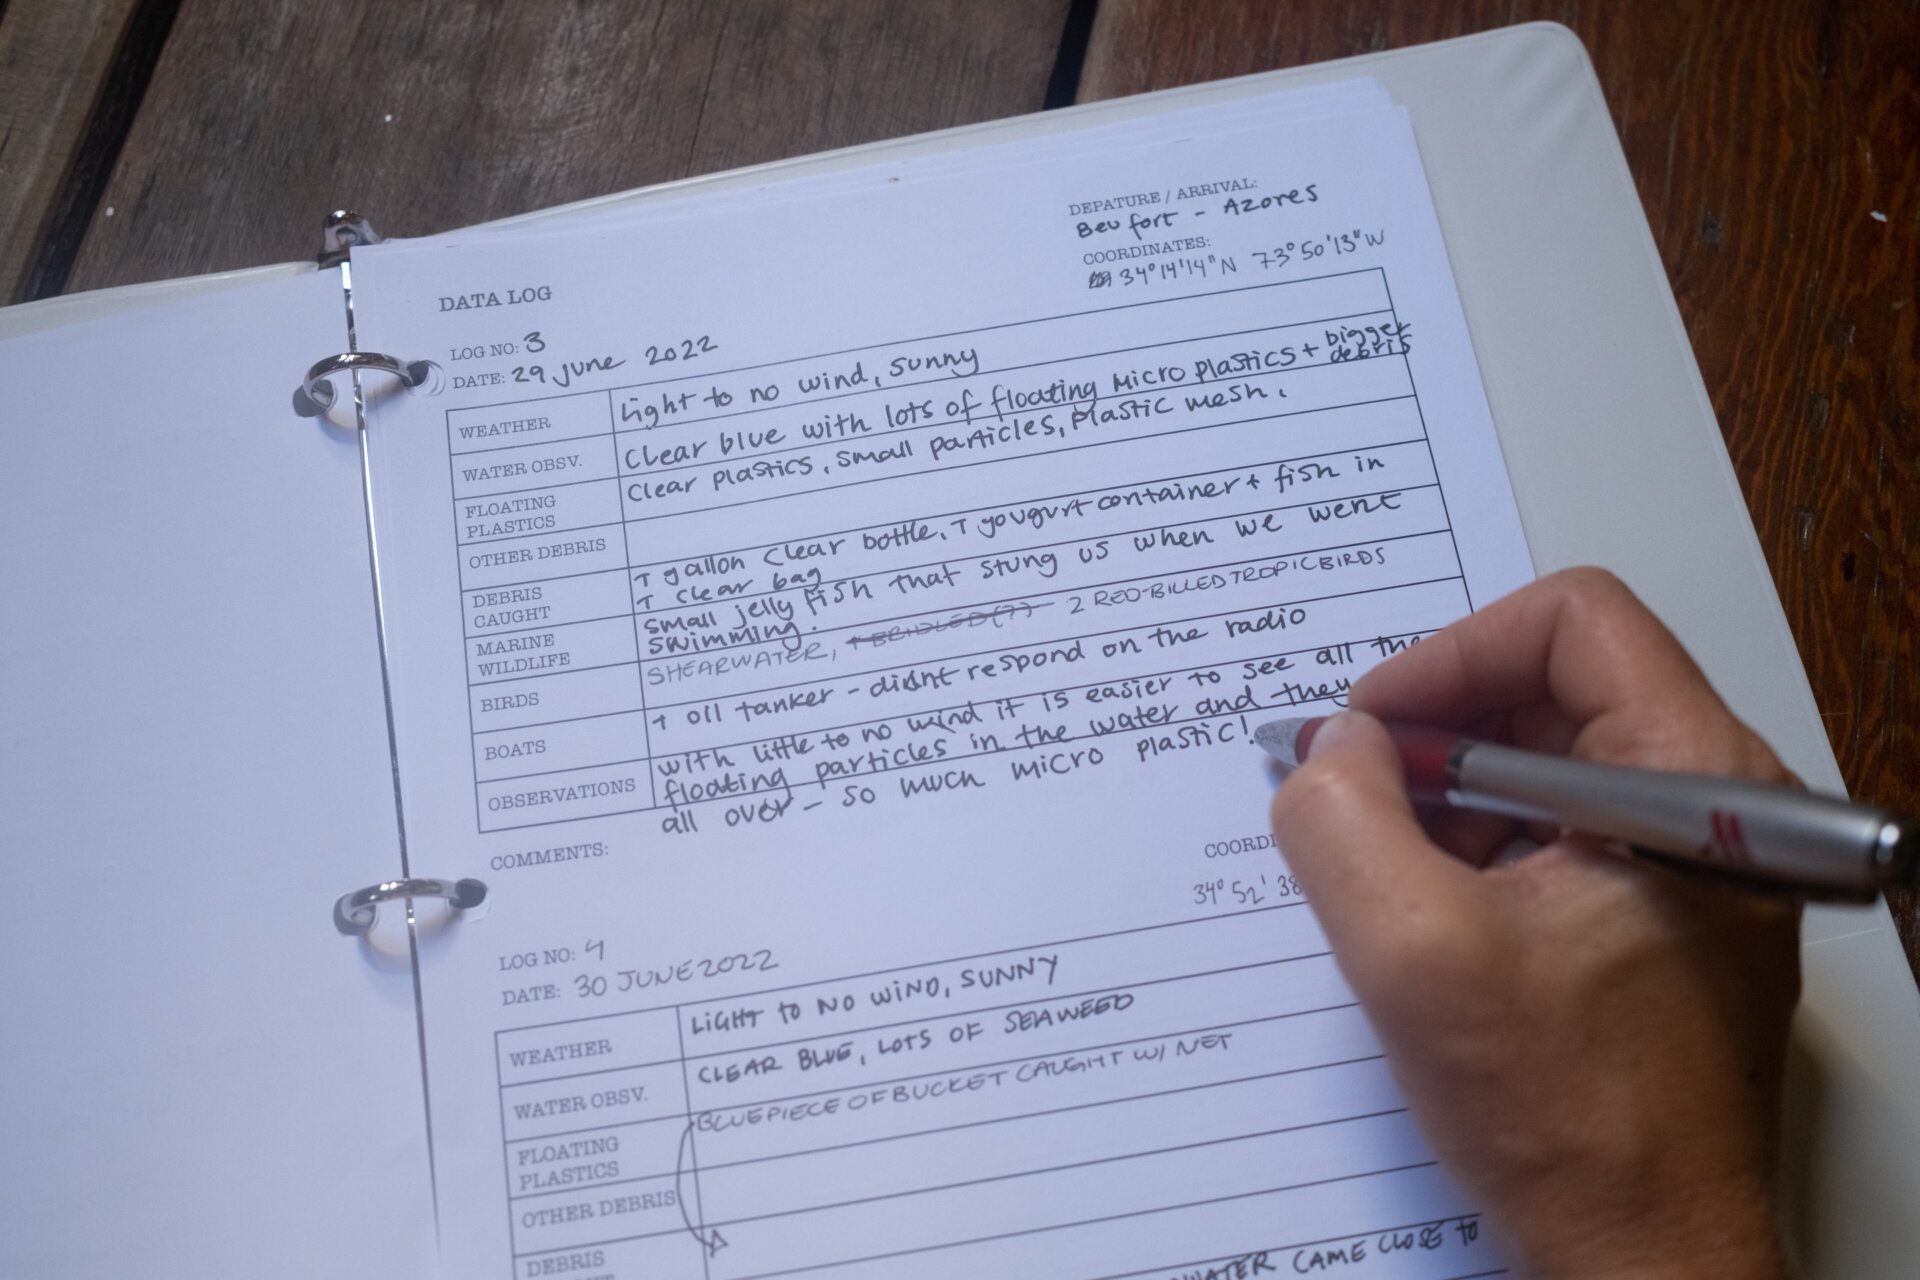 DEPATURE / ARRIVAL:
Beufort - Azores
COORDINATES:
34°14'14"N 73°50'13"W
DATA LOG
LOG NO: 3
DATE: 29 june 2022
WEATHER Light to no wind, sunny
WATER OBSV. Clear blue with lots of floating micro plastics + bigger debris
FLOATING PLASTICS Clear plastics, small particles, plastic mesh.
OTHER DEBRIS
DEBRIS CAUGHT 1 gallon clear bottle, 1 yougurt container + fish in
1 clear bag
MARINE WILDLIFE small jelly fish that stung us when we went
swimming.
BIRDS SHEARWATER, 1 BRIDLED(?) 2 RED-BILLED TROPICBIRDS
BOATS 1 oil tanker - didnt respond on the radio
OBSERVATIONS with little to no wind it is easier to see all the
floating particles in the water and they
all over - so much micro plastic!
COMMENTS:
COORDI
34° 52' 38
LOG NO: 4
DATE: 30 JUNE 2022
WEATHER LIGHT TO NO WIND, SUNNY
WATER OBSV. CLEAR BLUE, LOTS OF SEAWEED
FLOATING PLASTICS BLUE PIECE OF BUCKET CAUGHT W/ NET
OTHER DEBRIS
DEBRIS
CAME CLOSE TO